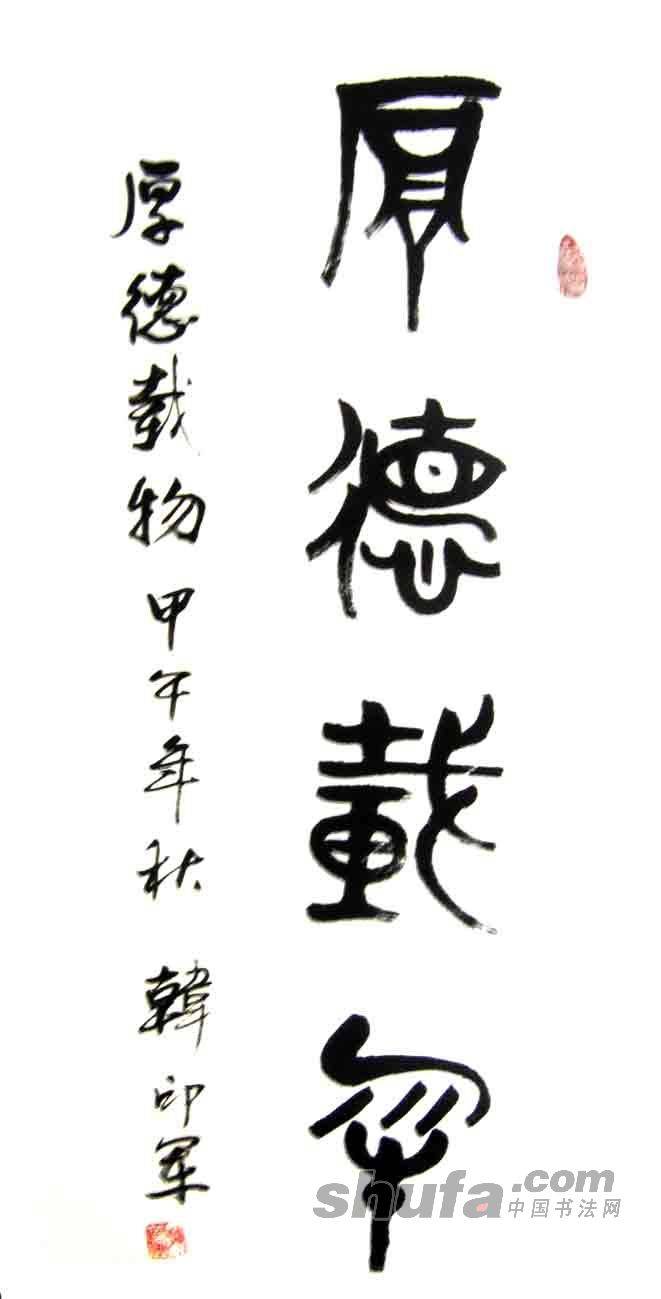 厚德載物
厚德載物 甲午年秋 韓印军
shufa.com
中国书法网